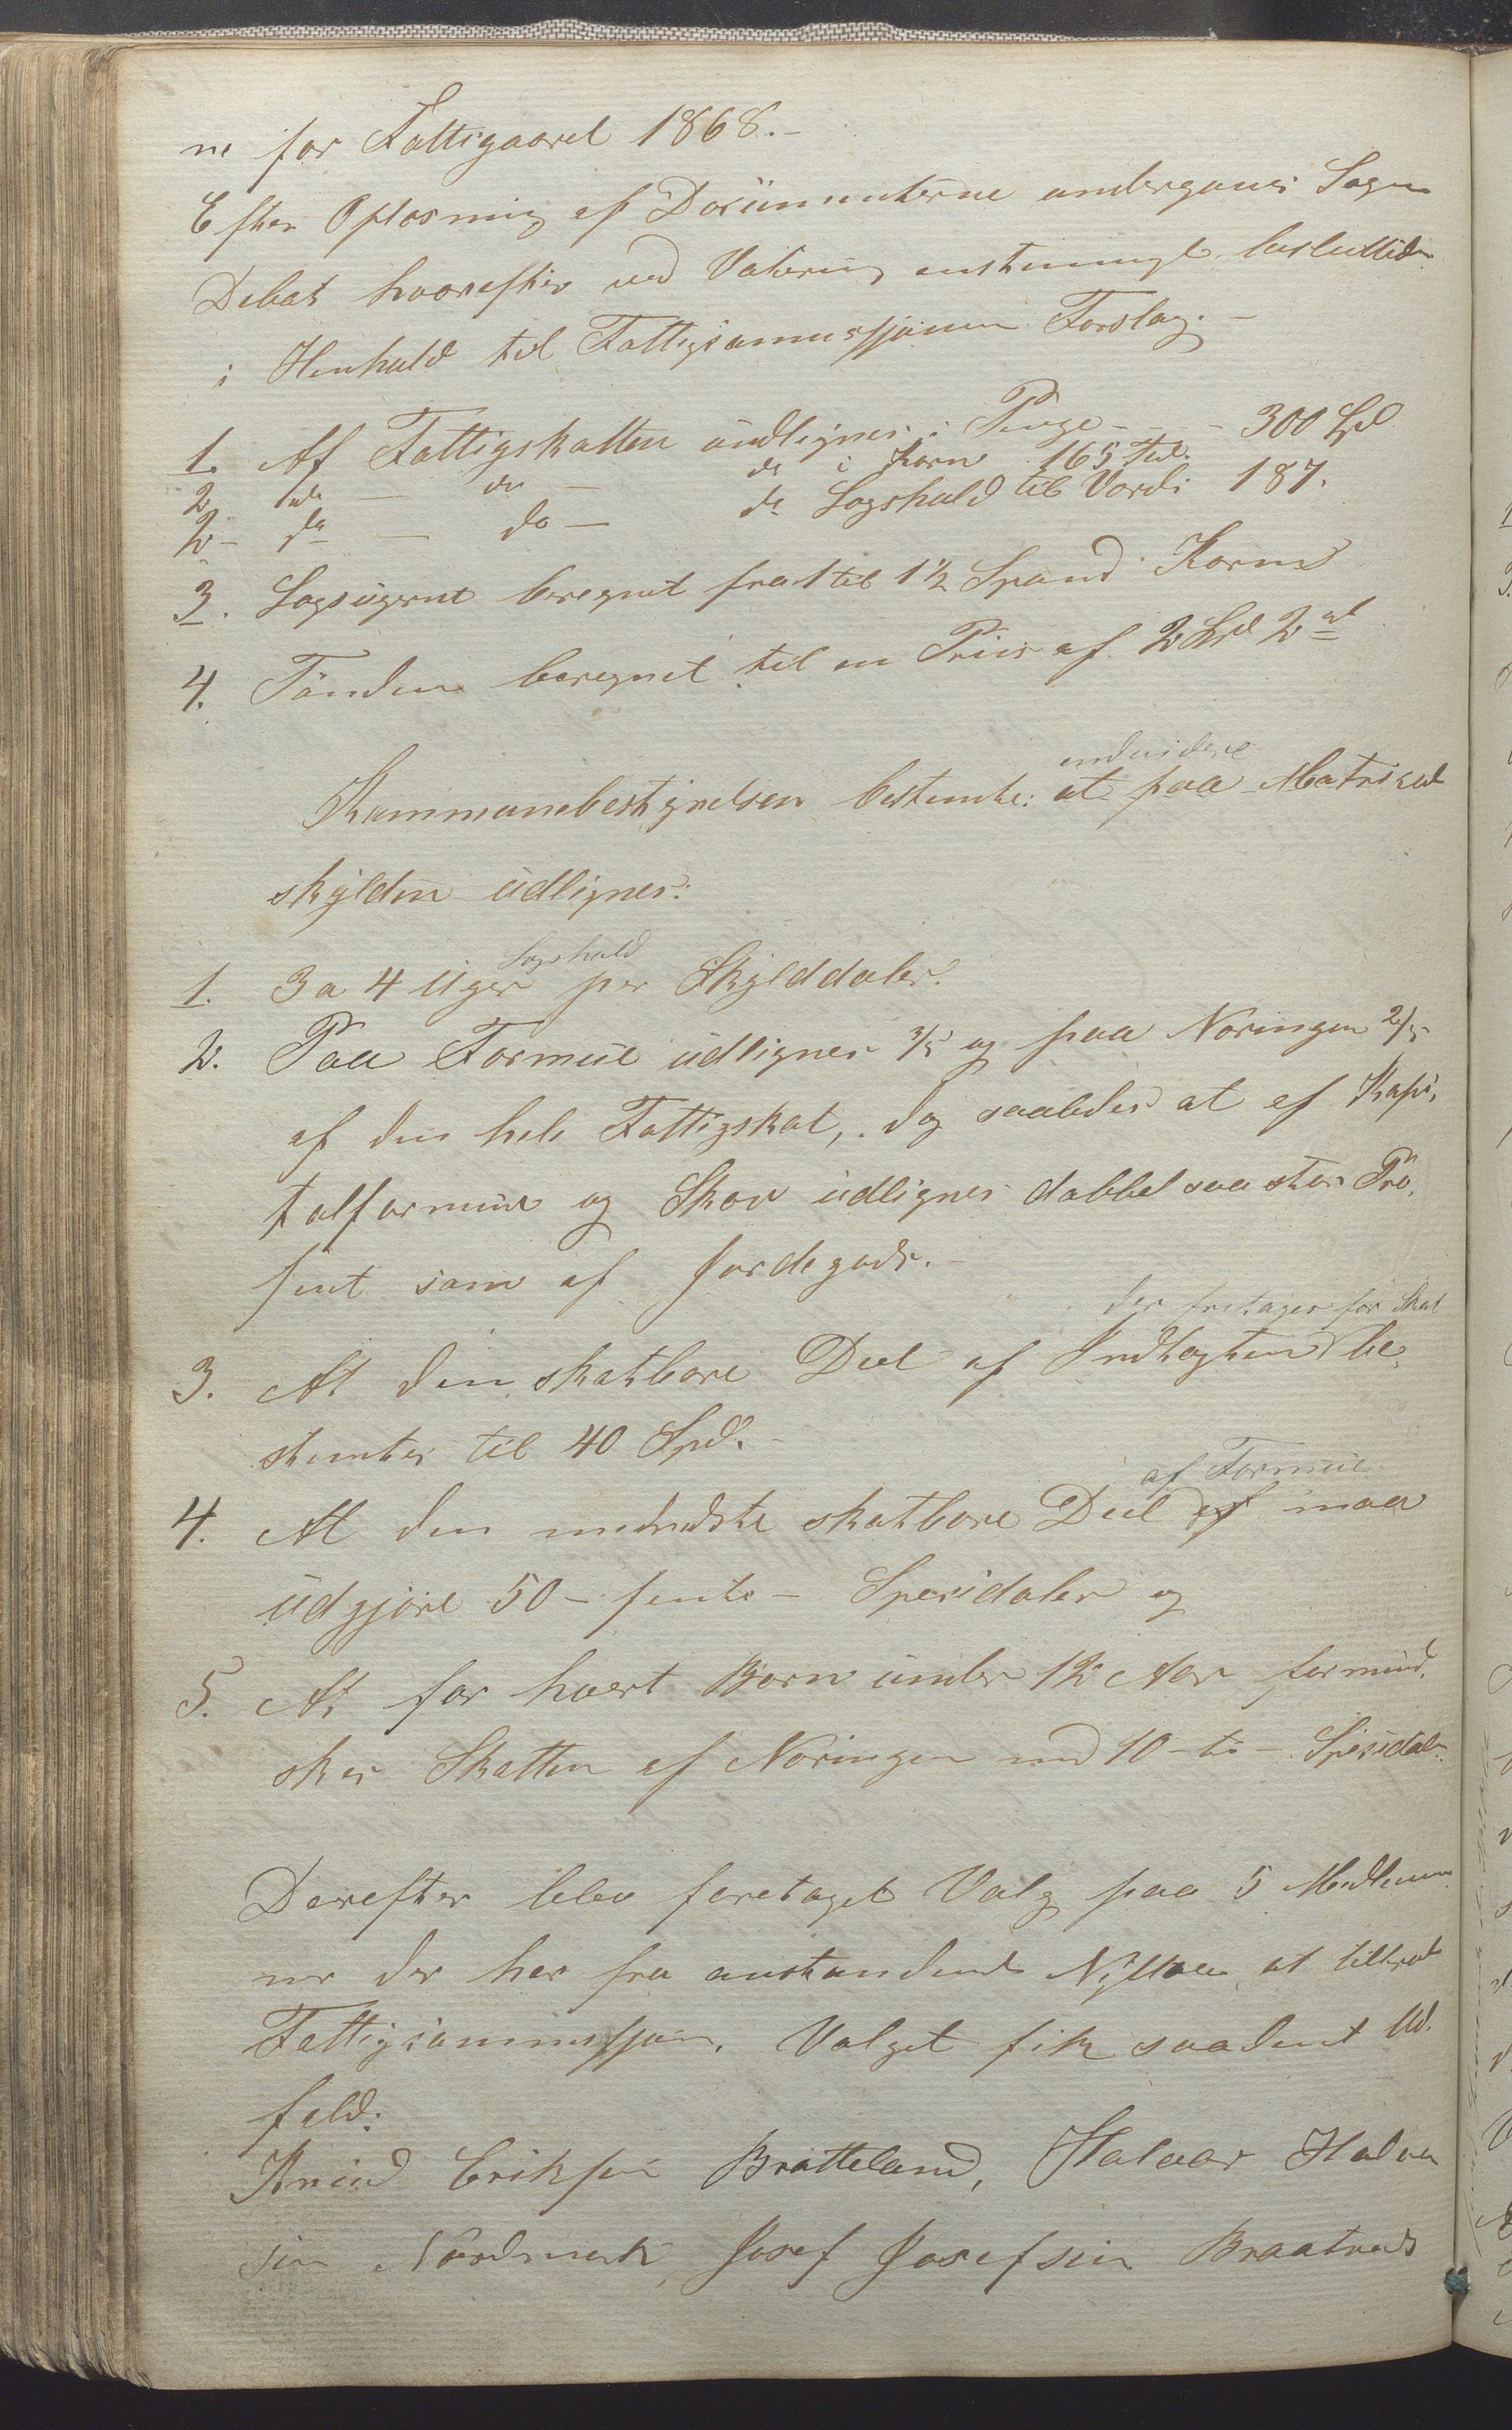 ne for Fattigaaret 1868.-
Efter Oplæsning af Documenterne undergaves Sagen
Debat hvorefter ved Votering enstemmigt besluttedes
i Henhold til Fattigcommissjonen Forslag.-
1. Af Fattigskatten udlignes i Penge - - - 300 Spd
2 do - do - do i Korn 165 Tdr.
2 - do - do - do Lægshold til Værdi 187.
3. Lægsugerne beregnet fra 1 til 1 1/2 Spand Korn
4. Tønden beregnet til en Priis af 2 Spd 2 ort
endvidere
Kommunebestyrelsen bestemte: at paa Matrikul
skylden udlignes:
Lægshold
1. 3 a 4 Uger per Skylddaler.
2. Paa Formue udlignes 3/5 og paa Næringen 2/5
af den hele Fattigskat, dog saaledes at af Kapi,
talformue og Skov udlignes dobbel saa stor Pro,
sent som af Jordegods.-
der fritages for Skat
3. At den skatbare Deel af Indtægten be,
stemtes til 40 Spd.-
af Formue
4. At den mindste skatbare Deel af maa
udgjøre 50 - femti - Spesidaler og
5. At for hvert Børn under 12 Aar formind,
skes Skatten af Næringen med 10 - ti - Spesidal.
Derefter blev foretaget Valg paa 5 Medlem
mer der har fra anstundende Nytaar at tiltræde
Fattigcommissjon. Valget fik saadent Ud.
fald:
Knud Eriksen Bratteland, Halvor Halvor
sen Nordmark, Josef Josefsen